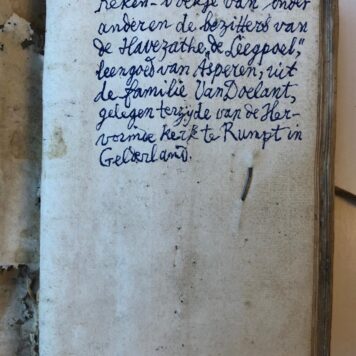 Reken-boekje van onder
anderen de bezitters van
de Havezathe „de Leegpoel"
leengoed van Asperen, uit
de familie Van Doelant,
gelegen terzijde van de Her-
vormde kerk te Rumpt in
Gelderland.